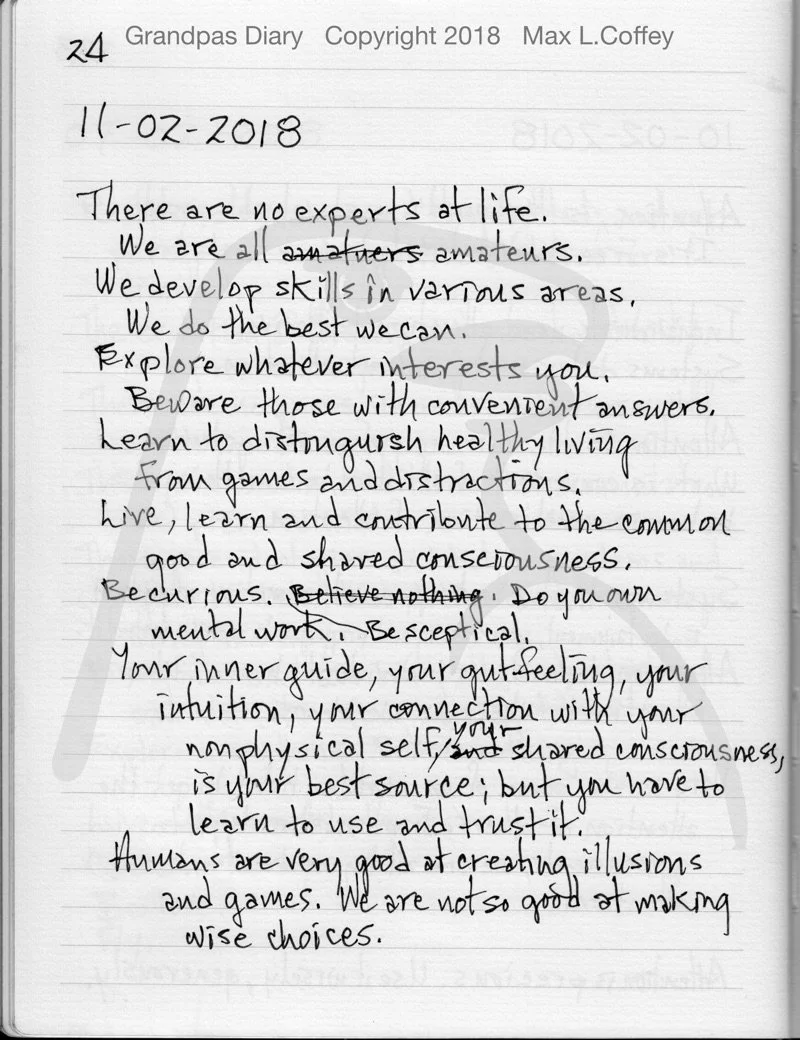 Grandpas Diary Copyright 2018 Max L.Coffey
24
11-02-2018
There are no experts at life.
We are all amatuers amateurs.
We develop skills in various areas.
We do the best we can.
Explore whatever interests you.
Beware those with convenient answers.
Learn to distinguish healthy living
from games and distractions.
Live, learn and contribute to the common
good and shared consciousness.
Be curious. Believe nothing. Do you own
mental work. Be sceptical.
Your inner guide, your gut feeling, your
intuition, your connection with your
your
nonphysical self, and shared consciousness,
is your best source; but you have to
learn to use and trust it.
Humans are very good at creating illusions
and games. We are not so good at making
wise choices.